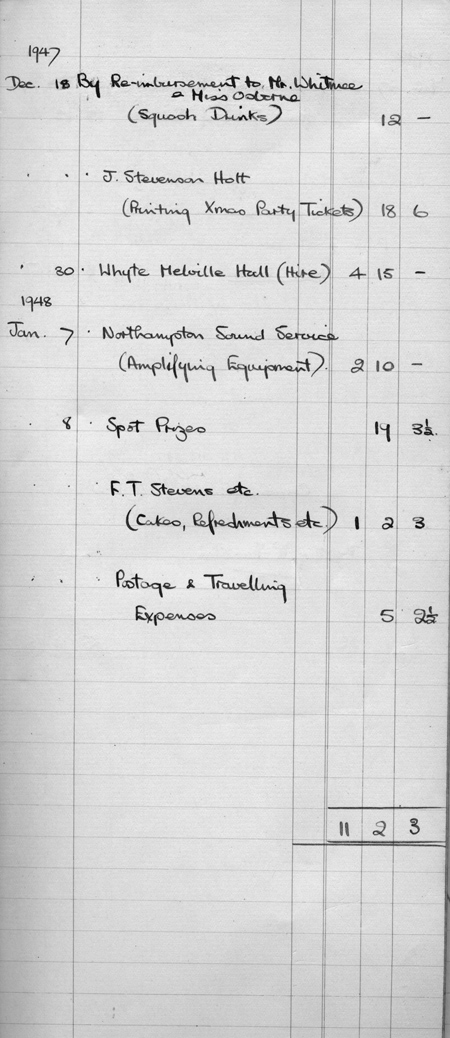 1947
Dec. 18 By Re-imbursement to Mr.
& Miss Osborne
(Squash Drinks) 12 -
" " " J. Stevenson Holt
(Printing Xmas Party Tickets) 18 6
" 30 " Whyte Melville Hall (Hire) 4 15 -
1948
Jan. 7 " Northampton Sound Service
(Amplifying Equipment). 2 10 -
" 8 " Spot Prizes 19 3½
" " " F.T. Stevens etc.
(Cakes, Refreshments etc.) 1 2 3
" " " Postage & Travelling
Expenses 5 2½
11 2 3